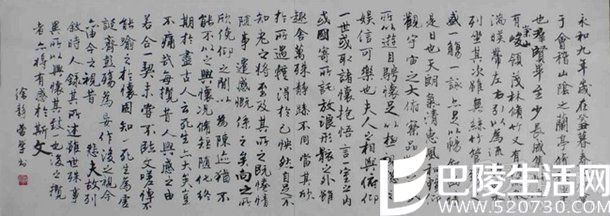 永和九年歲在癸丑暮春
于會稽山陰之蘭亭
也羣賢畢至少長咸集
有崇山峻領茂林脩竹又有
湍暎帶左右引以為流
列坐其次雖無絲竹
盛一觴一詠亦足以暢
是日也天朗氣清惠風
觀宇宙之大俯察品
所以遊目騁懷足以極
娛信可樂也夫人之相與俯仰
一世或取諸懷抱悟言一室之內
或因寄所託放浪形骸之外雖
趣舍萬殊靜躁不同當其欣
於所遇暫得於己怏然自足不
知老之將至及其所之既惓情
隨事遷感慨係之矣向之所
欣俛仰之閒以為陳迹猶不
能不以之興懷況脩短隨化終
期於盡古人云死生亦大矣豈
不痛哉每攬昔人興感之由
若合一契未嘗不臨文嗟悼不
能喻之於懷固知一死生為虛
誕齊彭殤為妄作後之視今
亦由今之視昔悲夫故列
敘時人錄其所述雖世殊事
異所以興懷其致一也後之攬
者亦將有感於斯文
巴陵生活网
www.520730.com